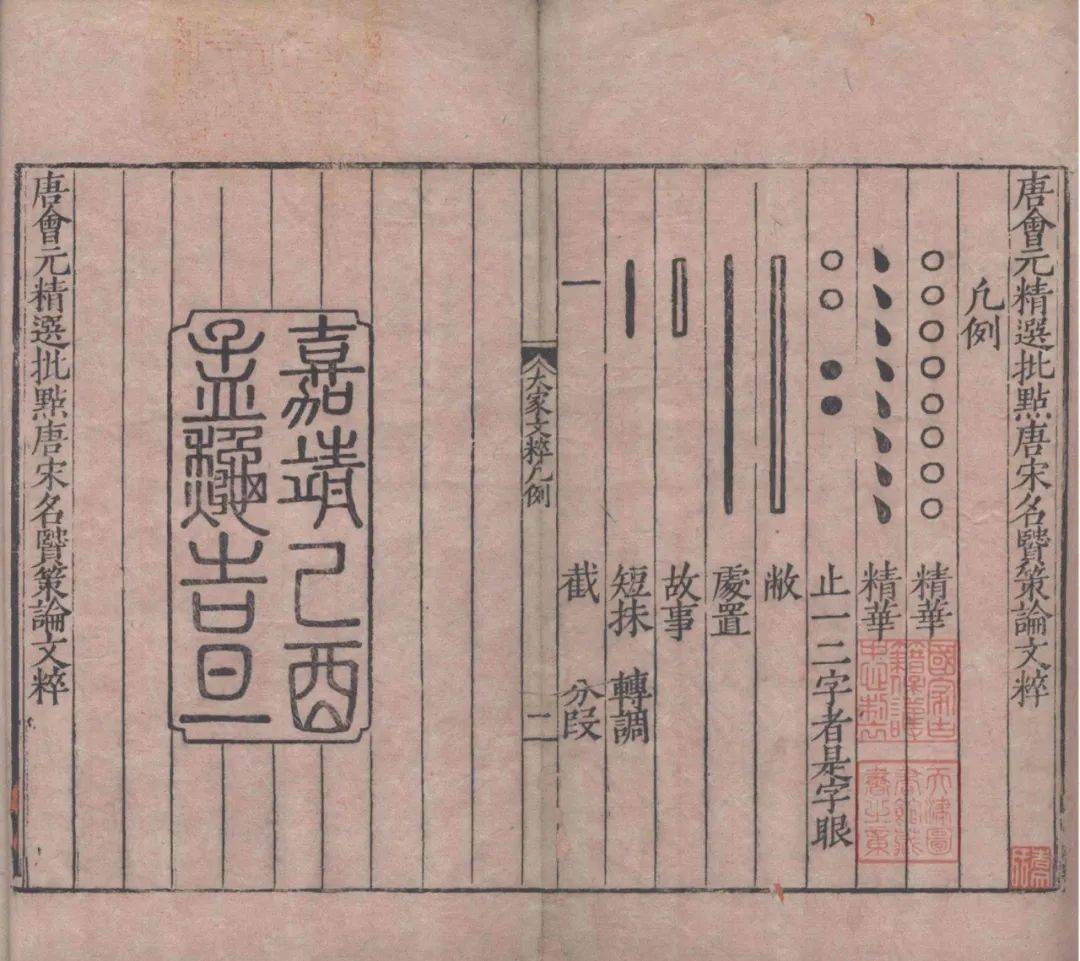 唐會元精選批點唐宋名賢策論文粹
凡例
○○○○○○○ 精華
精華
○○●● 止一二字者是字眼
敝
處置
故事
短抹 轉調
截 分段
大家文粹凡例 二
嘉靖己酉
孟龝吉旦
唐會元精選批點唐宋名賢策論文粹
天津圖
書館藏
書之章